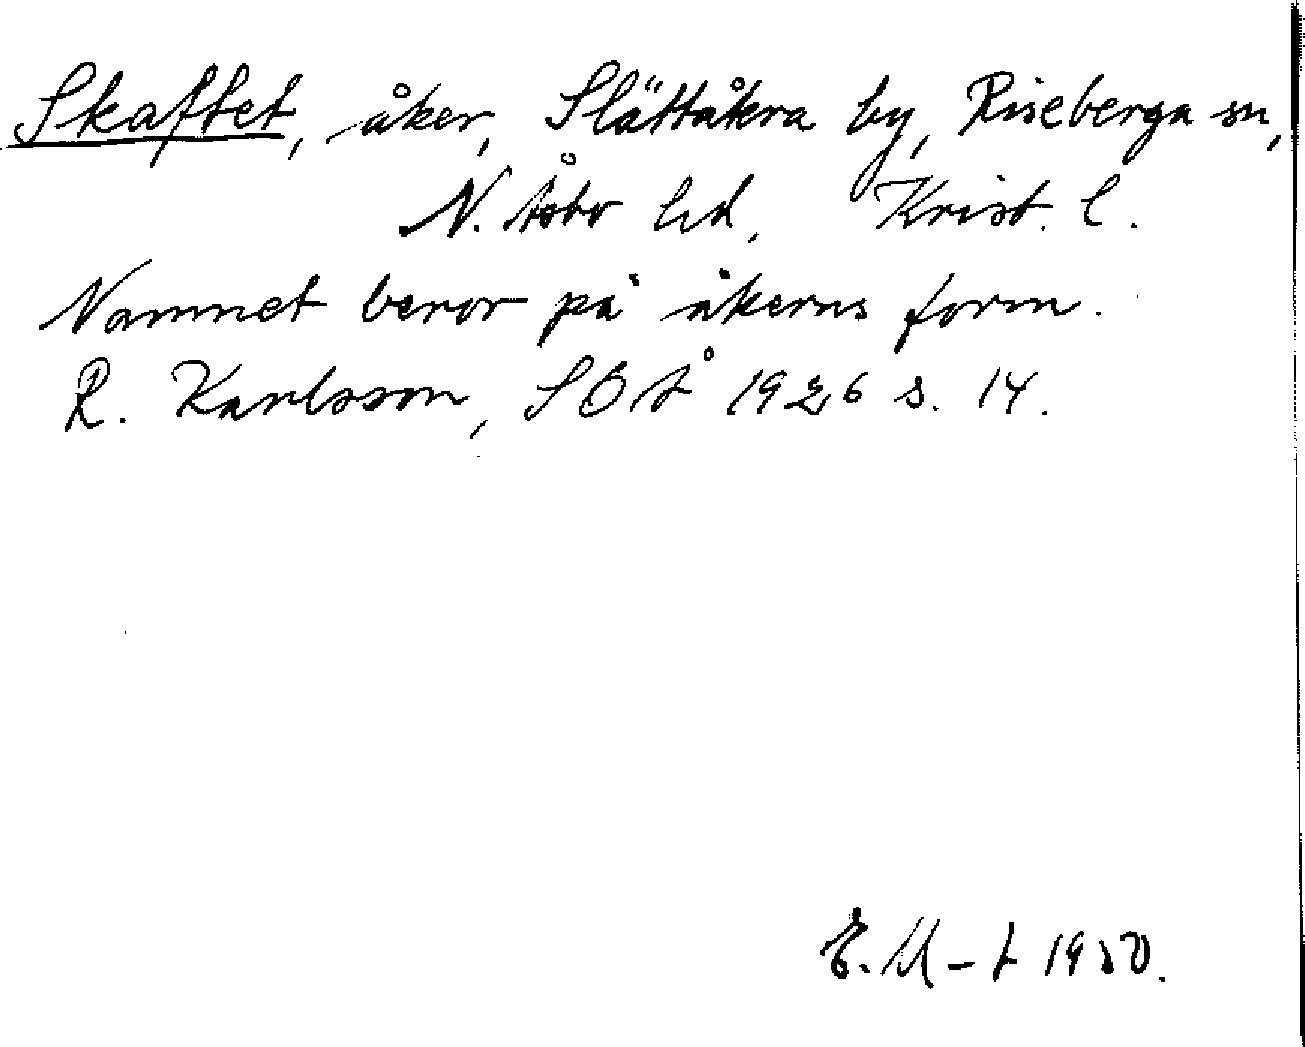 Skaftet, åker, Slättåkra by, Riseberga sn,
N. Åsbo hd, Krist. l.
Namnet beror på åkerns form.
R. Karlsson, SOÅ 1926 s. 14.
E. M-t 1950.